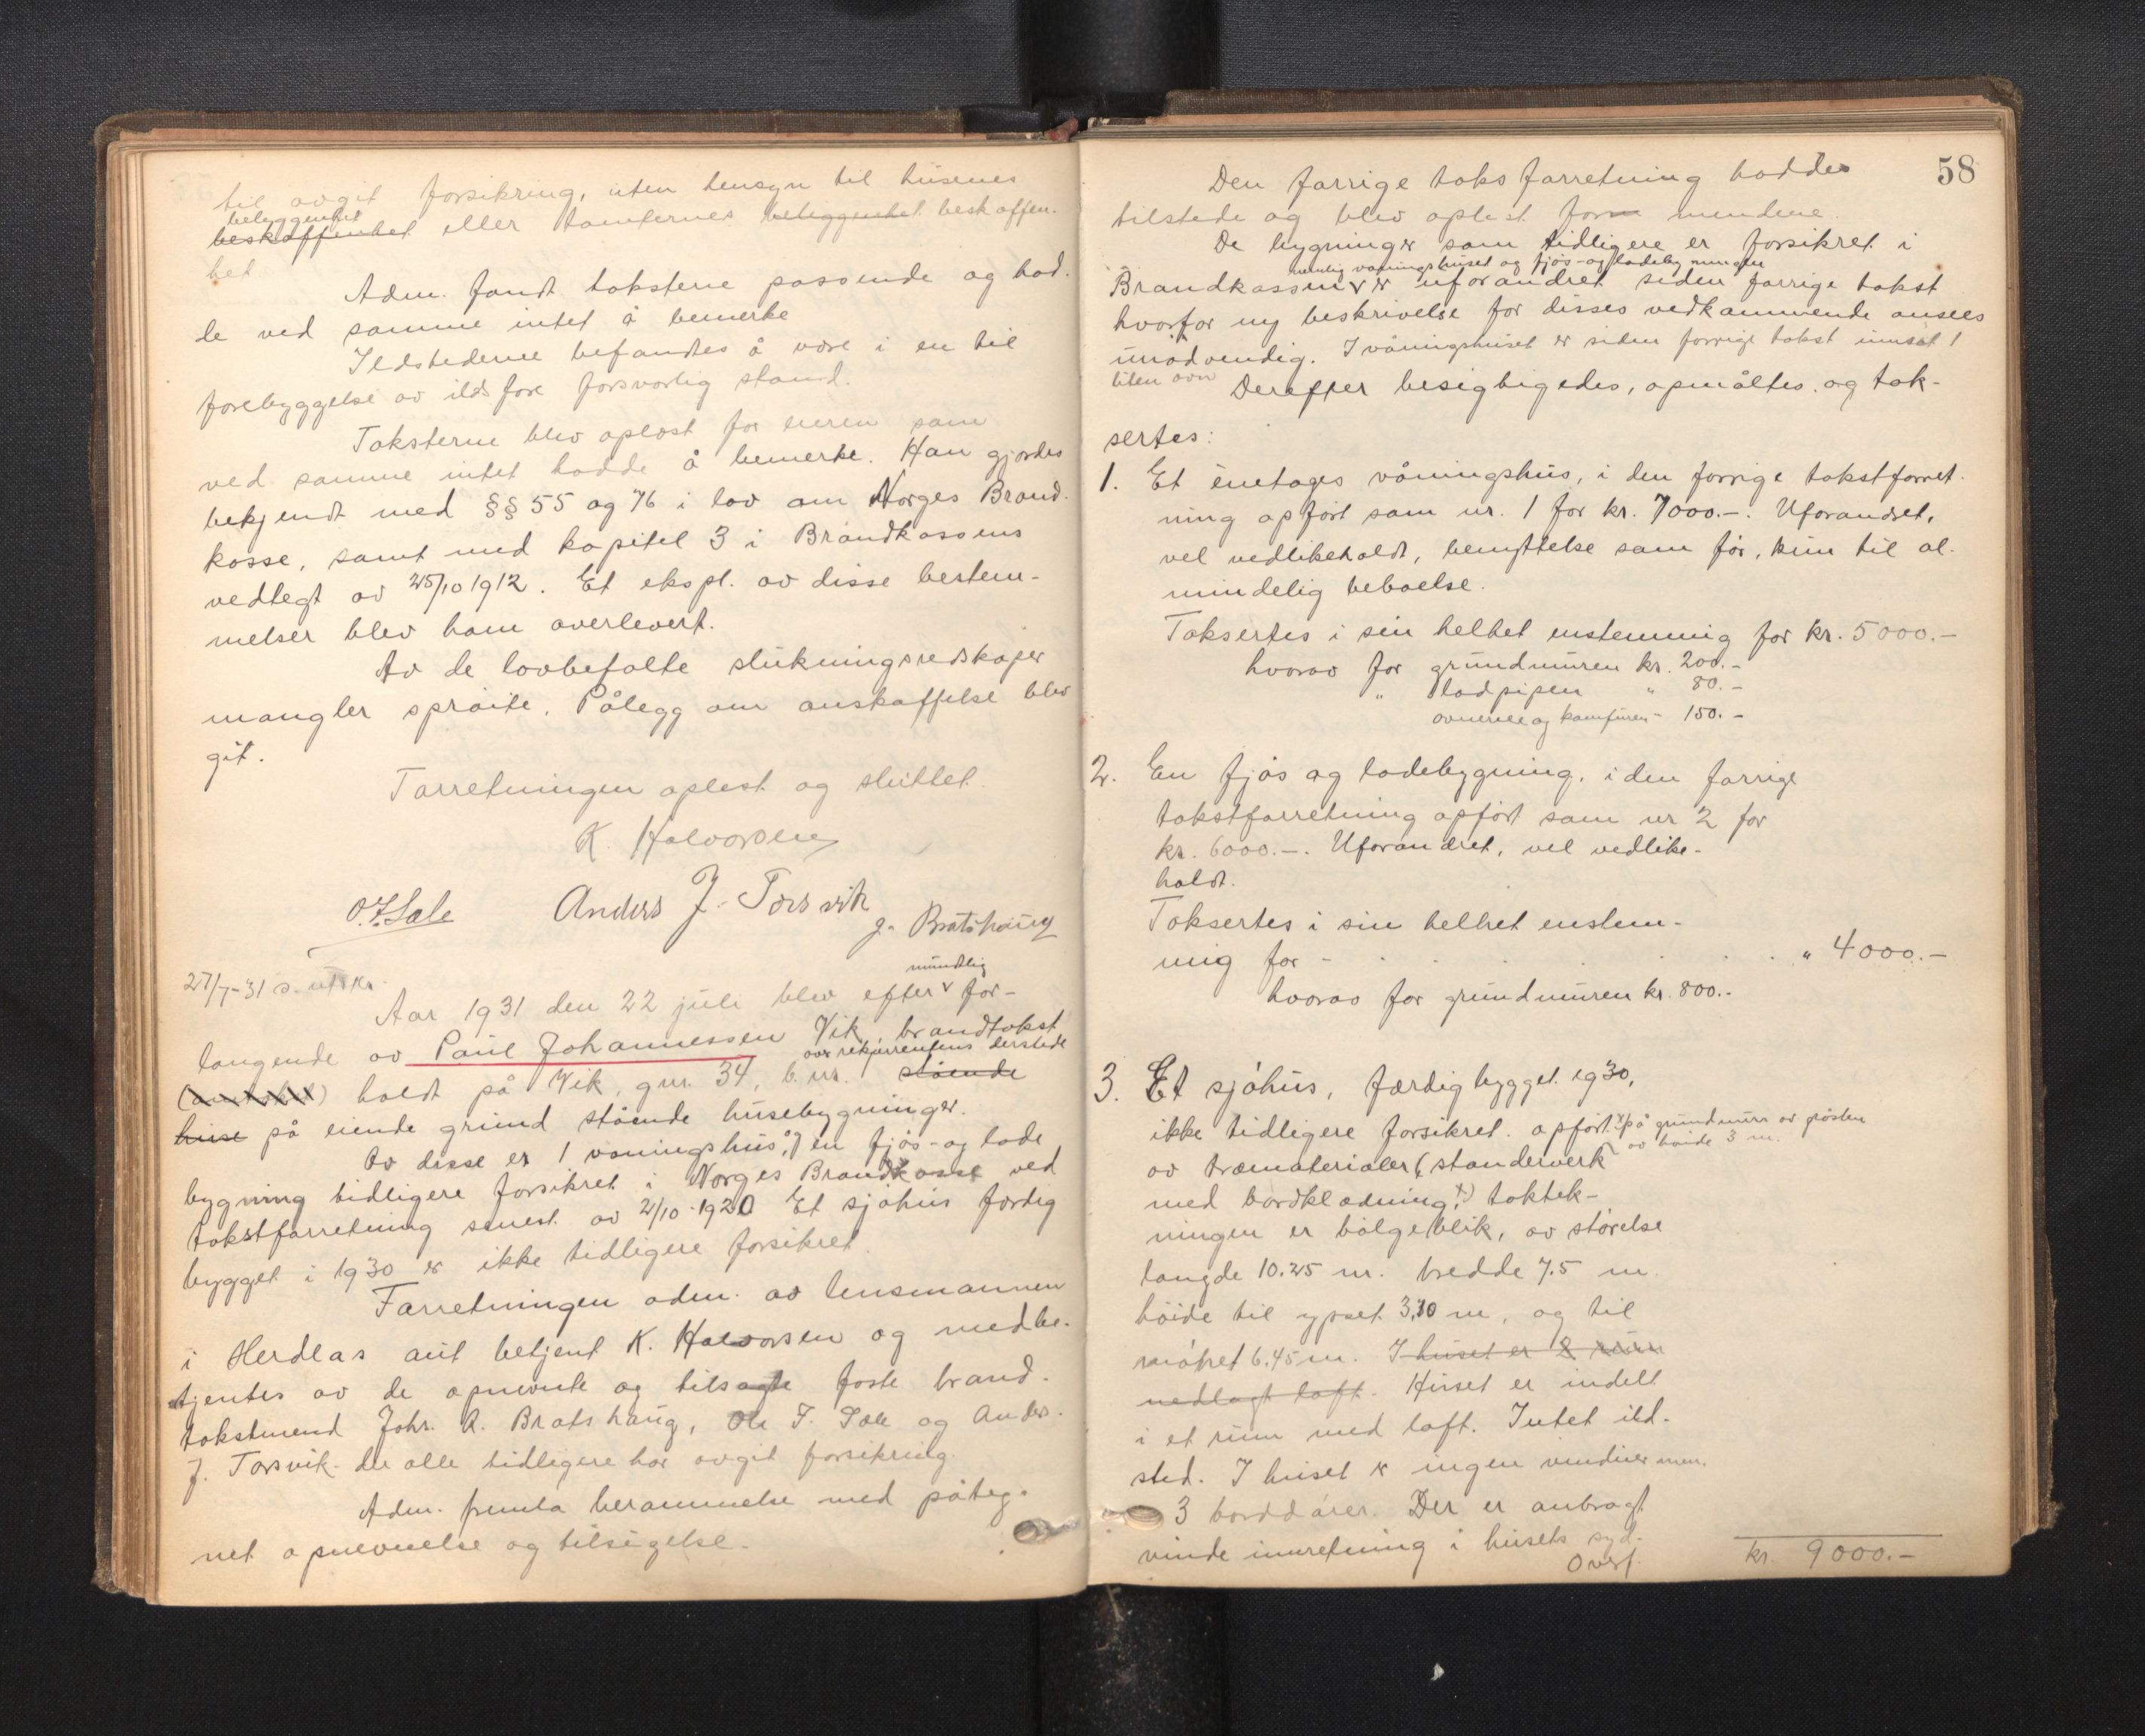 til avgit forsikring, uten hensyn til husenes
beliggenhet
beskaffenhet eller tomternes beliggenhet beskaffen-
het
Adm. fandt taksterne passende og had-
de ved samme intet å bemerke
Ildstederne befandtes å være i en til
forebyggelse av ildsfare forsvarlig stand.
Taksterne blev oplæst for eieren som
ved samme intet hadde å bemerke. Han gjordes
bekjendt med §§ 55 og 76 i lov om Norges Brand-
kasse, samt med kapitel 3 i Brandkassens
vedtegt av 25/10 1912. Et ekspl. av disse bestem-
melser blev ham overlevert.
Av de lovbefalte slukningsredskaper
mangler sprøite. Pålegg om anskaffelse blev
git.
Forretningen oplest og sluttet.
K. Halvorsen
O. F. Sale Anders J. Torsvik
J. Bratshaug
27/7-31 s. utskr.
mundtlig
Aar 1931 den 22 juli blev efter for-
langende av Paul Johannessen Vik brandtakst
over rekvirentens derstede
holdt på Vik, gnr. 34, b.nr. stående
huse på eiende grund stående husebygninger.
Av disse er 1 våningshus, en fjøs- og lade
bygning tidligere forsikret i Norges Brandkasse ved
takstforretning senest av 2/10-1920 Et sjøhus færdig
bygget i 1930 er ikke tidligere forsikret.
Forretningen adm. av lensmannen
i Herdlas aut betjent K. Halvorsen og medbe-
tjentes av de opnevnte og tilsagte faste brand-
takstmend Johs. A. Bratshaug, Ole F. Sale og Anders
J. Torsvik der alle tidligere har avgit forsikring.
Adm. fremla berammelse med påteg-
net opnevnelse og tilsigelse.
58
Den forrige taksforretning haddes
tilstede og blev oplest for mendene.
De bygninger som tidligere er forsikret i
nemlig våningshuset og fjøs- og ladebygningen
Brandkassen er uforandret siden forrige takst
hvorfor ny beskrivelse for disses vedkommende ansees
unødvendig. I våningshuset er siden forrige takst innsat 1
liten ovn
Derefter besigtigedes, opmåltes og tak-
sertes:
1. Et enetages våningshus, i den forrige takstforret-
ning opført som nr. 1 for kr. 7000.-. Uforandret,
vel vedlikeholdt, benyttelse som før, kun til al-
mindelig beboelse.
Taksertes i sin helhet enstemmig for kr. 5000.-
hvorav for grundmuren kr. 200.-
" " ladpipen " 80.-
ovnene og komfuren - 150.-
2. En fjøs og ladebygning, i den forrige
takstforretning opført som nr 2 for
kr. 6000.-. Uforandret, vel vedlike-
holdt.
Taksertes i sin helhet enstem-
mig for - " 4000.-
hvorav for grundmuren kr. 800.-
3. Et sjøhus, færdig bygget 1930,
ikke tidligere forsikret. opført x) på grundmur av gråsten
av høide 3 m.
av træmaterialer (standerverk
med bordklædning x) taktek-
ningen er bølgeblik, av størelse
længde 10.25 m. bredde 7.5 m.
høide til gpset 3,30 m, og til
mønet 6.45 m. I huset er 2 rum
nedlagt loft. Huset er indelt
i et rum med loft. Intet ild-
sted. I huset er ingen vinduer men
3 borddører. Der er anbragt
vinde innretning i husets syd-
Overf. kr. 9000.-